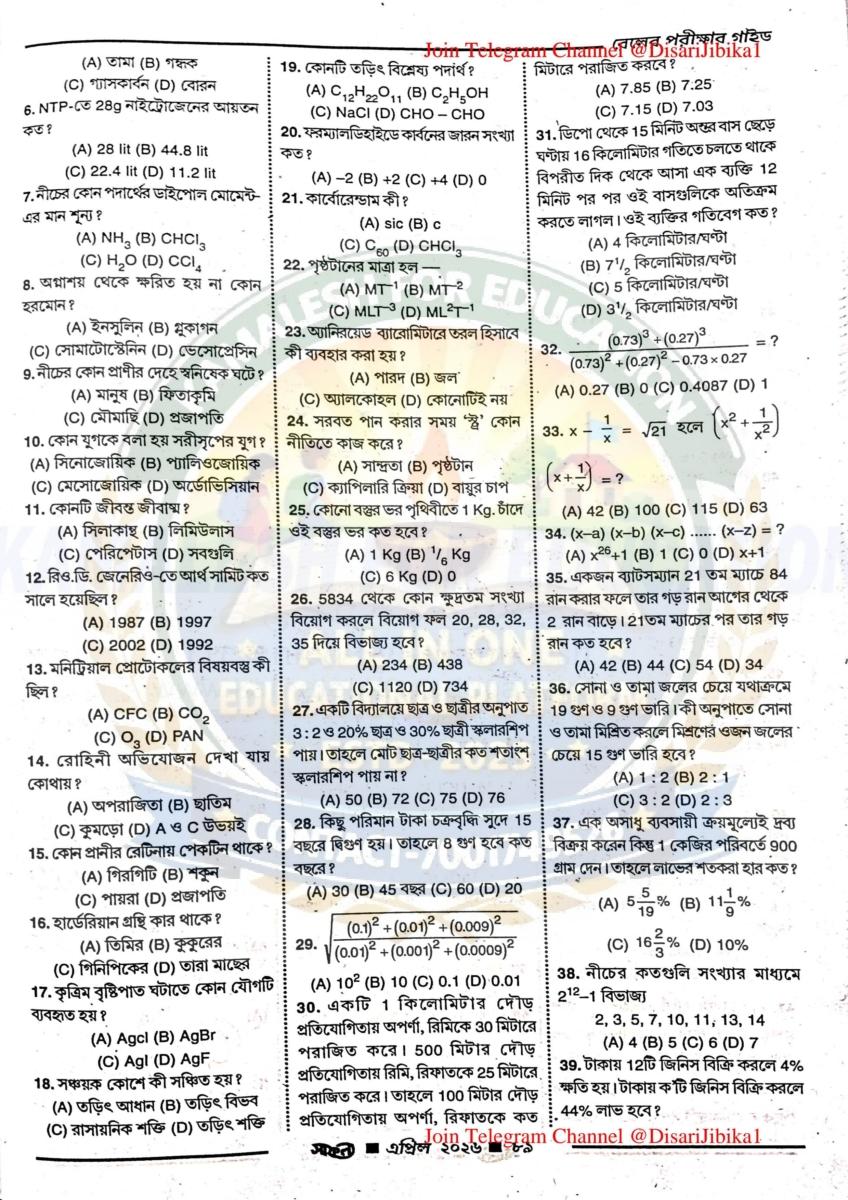 রেলের পরীক্ষার গাইড
Join Telegram Channel @DisariJibika1
(A) তামা (B) গন্ধক
(C) গ্যাসকার্বন (D) বোরন
6. NTP-তে 28g নাইট্রোজেনের আয়তন
কত?
(A) 28 lit (B) 44.8 lit
(C) 22.4 lit (D) 11.2 lit
7. নীচের কোন পদার্থের ডাইপোল মোমেন্ট-
এর মান শূন্য?
(A) NH₃ (B) CHCl₃
(C) H₂O (D) CCl₄
8. অগ্ন্যাশয় থেকে ক্ষরিত হয় না কোন
হরমোন?
(A) ইনসুলিন (B) গ্লুকাগন
(C) সোমাটোস্টেনিন (D) ভেসোপ্রেসিন
9. নীচের কোন প্রাণীর দেহে স্বনিষেক ঘটে?
(A) মানুষ (B) ফিতাকৃমি
(C) মৌমাছি (D) প্রজাপতি
10. কোন যুগকে বলা হয় সরীসৃপের যুগ?
(A) সিনোজোয়িক (B) প্যালিওজোয়িক
(C) মেসোজোয়িক (D) অর্ডোভিসিয়ান
11. কোনটি জীবন্ত জীবাশ্ম?
(A) সিলাকান্থ (B) লিমিউলাস
(C) পেরিপেটাস (D) সবগুলি
12. রিও.ডি. জেনেরিও-তে আর্থ সামিট কত
সালে হয়েছিল?
(A) 1987 (B) 1997
(C) 2002 (D) 1992
13. মনিট্রিয়াল প্রোটোকলের বিষয়বস্তু কী
ছিল?
(A) CFC (B) CO₂
(C) O₃ (D) PAN
14. রোহিনী অভিযোজন দেখা যায়
কোথায়?
(A) অপরাজিতা (B) ছাতিম
(C) কুমড়ো (D) A ও C উভয়ই
15. কোন প্রানীর রেটিনায় পেকটিন থাকে?
(A) গিরগিটি (B) শকুন
(C) পায়রা (D) প্রজাপতি
16. হার্ডেরিয়ান গ্রন্থি কার থাকে?
(A) তিমির (B) কুকুরের
(C) গিনিপিকের (D) তারা মাছের
17. কৃত্রিম বৃষ্টিপাত ঘটাতে কোন যৌগটি
ব্যবহৃত হয়?
(A) Agcl (B) AgBr
(C) AgI (D) AgF
18. সঞ্চয়ক কোশে কী সঞ্চিত হয়?
(A) তড়িৎ আধান (B) তড়িৎ বিভব
(C) রাসায়নিক শক্তি (D) তড়িৎ শক্তি
19. কোনটি তড়িৎ বিশ্লেষ্য পদার্থ?
(A) C₁₂H₂₂O₁₁ (B) C₂H₅OH
(C) NaCl (D) CHO – CHO
20. ফরম্যালডিহাইডে কার্বনের জারন সংখ্যা
কত?
(A) –2 (B) +2 (C) +4 (D) 0
21. কার্বোরেন্ডাম কী?
(A) sic (B) c
(C) C₆₀ (D) CHCl₃
22. পৃষ্ঠটানের মাত্রা হল —
(A) MT⁻¹ (B) MT⁻²
(C) MLT⁻³ (D) ML²T⁻¹
23. অ্যানিরয়েড ব্যারোমিটারে তরল হিসাবে
কী ব্যবহার করা হয়?
(A) পারদ (B) জল
(C) অ্যালকোহল (D) কোনোটিই নয়
24. সরবত পান করার সময় ‘স্ট্র’ কোন
নীতিতে কাজ করে?
(A) সান্দ্রতা (B) পৃষ্ঠটান
(C) ক্যাপিলারি ক্রিয়া (D) বায়ুর চাপ
25. কোনো বস্তুর ভর পৃথিবীতে 1 Kg. চাঁদে
ওই বস্তুর ভর কত হবে?
(A) 1 Kg (B) ¹/₆ Kg
(C) 6 Kg (D) 0
26. 5834 থেকে কোন ক্ষুদ্রতম সংখ্যা
বিয়োগ করলে বিয়োগ ফল 20, 28, 32,
35 দিয়ে বিভাজ্য হবে?
(A) 234 (B) 438
(C) 1120 (D) 734
27. একটি বিদ্যালয়ে ছাত্র ও ছাত্রীর অনুপাত
3 : 2 ও 20% ছাত্র ও 30% ছাত্রী স্কলারশিপ
পায়। তাহলে মোট ছাত্র-ছাত্রীর কত শতাংশ
স্কলারশিপ পায় না?
(A) 50 (B) 72 (C) 75 (D) 76
28. কিছু পরিমান টাকা চক্রবৃদ্ধি সুদে 15
বছরে দ্বিগুণ হয়। তাহলে 8 গুণ হবে কত
বছরে?
(A) 30 (B) 45 বছর (C) 60 (D) 20
29. √((0.1)² + (0.01)² + (0.009)² / (0.01)² + (0.001)² + (0.0009)²)
(A) 10² (B) 10 (C) 0.1 (D) 0.01
30. একটি 1 কিলোমিটার দৌড়
প্রতিযোগিতায় অপর্ণা, রিমিকে 30 মিটারে
পরাজিত করে। 500 মিটার দৌড়
প্রতিযোগিতায় রিমি, রিফাতকে 25 মিটারে
পরাজিত করে। তাহলে 100 মিটার দৌড়
প্রতিযোগিতায় অপর্ণা, রিফাতকে কত
মিটারে পরাজিত করবে?
(A) 7.85 (B) 7.25
(C) 7.15 (D) 7.03
31. ডিপো থেকে 15 মিনিট অন্তর বাস ছেড়ে
ঘণ্টায় 16 কিলোমিটার গতিতে চলতে থাকে
বিপরীত দিক থেকে আসা এক ব্যক্তি 12
মিনিট পর পর ওই বাসগুলিকে অতিক্রম
করতে লাগল। ওই ব্যক্তির গতিবেগ কত?
(A) 4 কিলোমিটার/ঘণ্টা
(B) 7¹/₂ কিলোমিটার/ঘণ্টা
(C) 5 কিলোমিটার/ঘণ্টা
(D) 3¹/₂ কিলোমিটার/ঘণ্টা
32. (0.73)³ + (0.27)³ / (0.73)² + (0.27)² – 0.73 × 0.27 = ?
(A) 0.27 (B) 0 (C) 0.4087 (D) 1
33. x – 1/x = √21 হলে (x² + 1/x²)
(x + 1/x) = ?
(A) 42 (B) 100 (C) 115 (D) 63
34. (x–a) (x–b) (x–c) ...... (x–z) = ?
(A) x²⁶+1 (B) 1 (C) 0 (D) x+1
35. একজন ব্যাটসম্যান 21 তম ম্যাচে 84
রান করার ফলে তার গড় রান আগের থেকে
2 রান বাড়ে। 21তম ম্যাচের পর তার গড়
রান কত হবে?
(A) 42 (B) 44 (C) 54 (D) 34
36. সোনা ও তামা জলের চেয়ে যথাক্রমে
19 গুণ ও 9 গুণ ভারি। কী অনুপাতে সোনা
ও তামা মিশ্রিত করলে মিশ্রণের ওজন জলের
চেয়ে 15 গুণ ভারি হবে?
(A) 1 : 2 (B) 2 : 1
(C) 3 : 2 (D) 2 : 3
37. এক অসাধু ব্যবসায়ী ক্রয়মূল্যেই দ্রব্য
বিক্রয় করেন কিন্তু 1 কেজির পরিবর্তে 900
গ্রাম দেন। তাহলে লাভের শতকরা হার কত?
(A) 5 5/19% (B) 11 1/9%
(C) 16 2/3% (D) 10%
38. নীচের কতগুলি সংখ্যার মাধ্যমে
2¹²–1 বিভাজ্য
2, 3, 5, 7, 10, 11, 13, 14
(A) 4 (B) 5 (C) 6 (D) 7
39. টাকায় 12টি জিনিস বিক্রি করলে 4%
ক্ষতি হয়। টাকায় ক'টি জিনিস বিক্রি করলে
44% লাভ হবে?
Join Telegram Channel @DisariJibika1
সাফল্য ■ এপ্রিল ২০২৬ ■ ৮৯